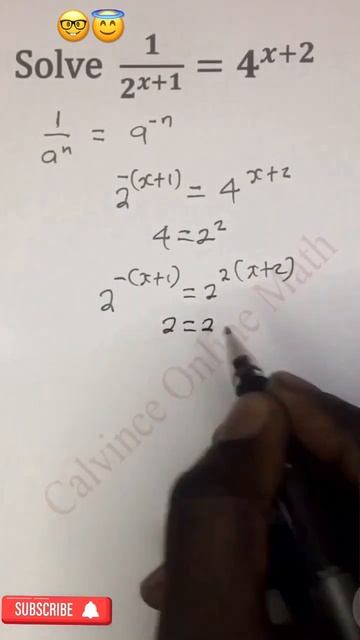 Solve 1/2^{x+1} = 4^{x+2}
1/a^n = a^{-n}
2^{-(x+1)} = 4^{x+2}
4 = 2^2
2^{-(x+1)} = 2^{2(x+2)}
2 = 2
Calvince Online Math
SUBSCRIBE